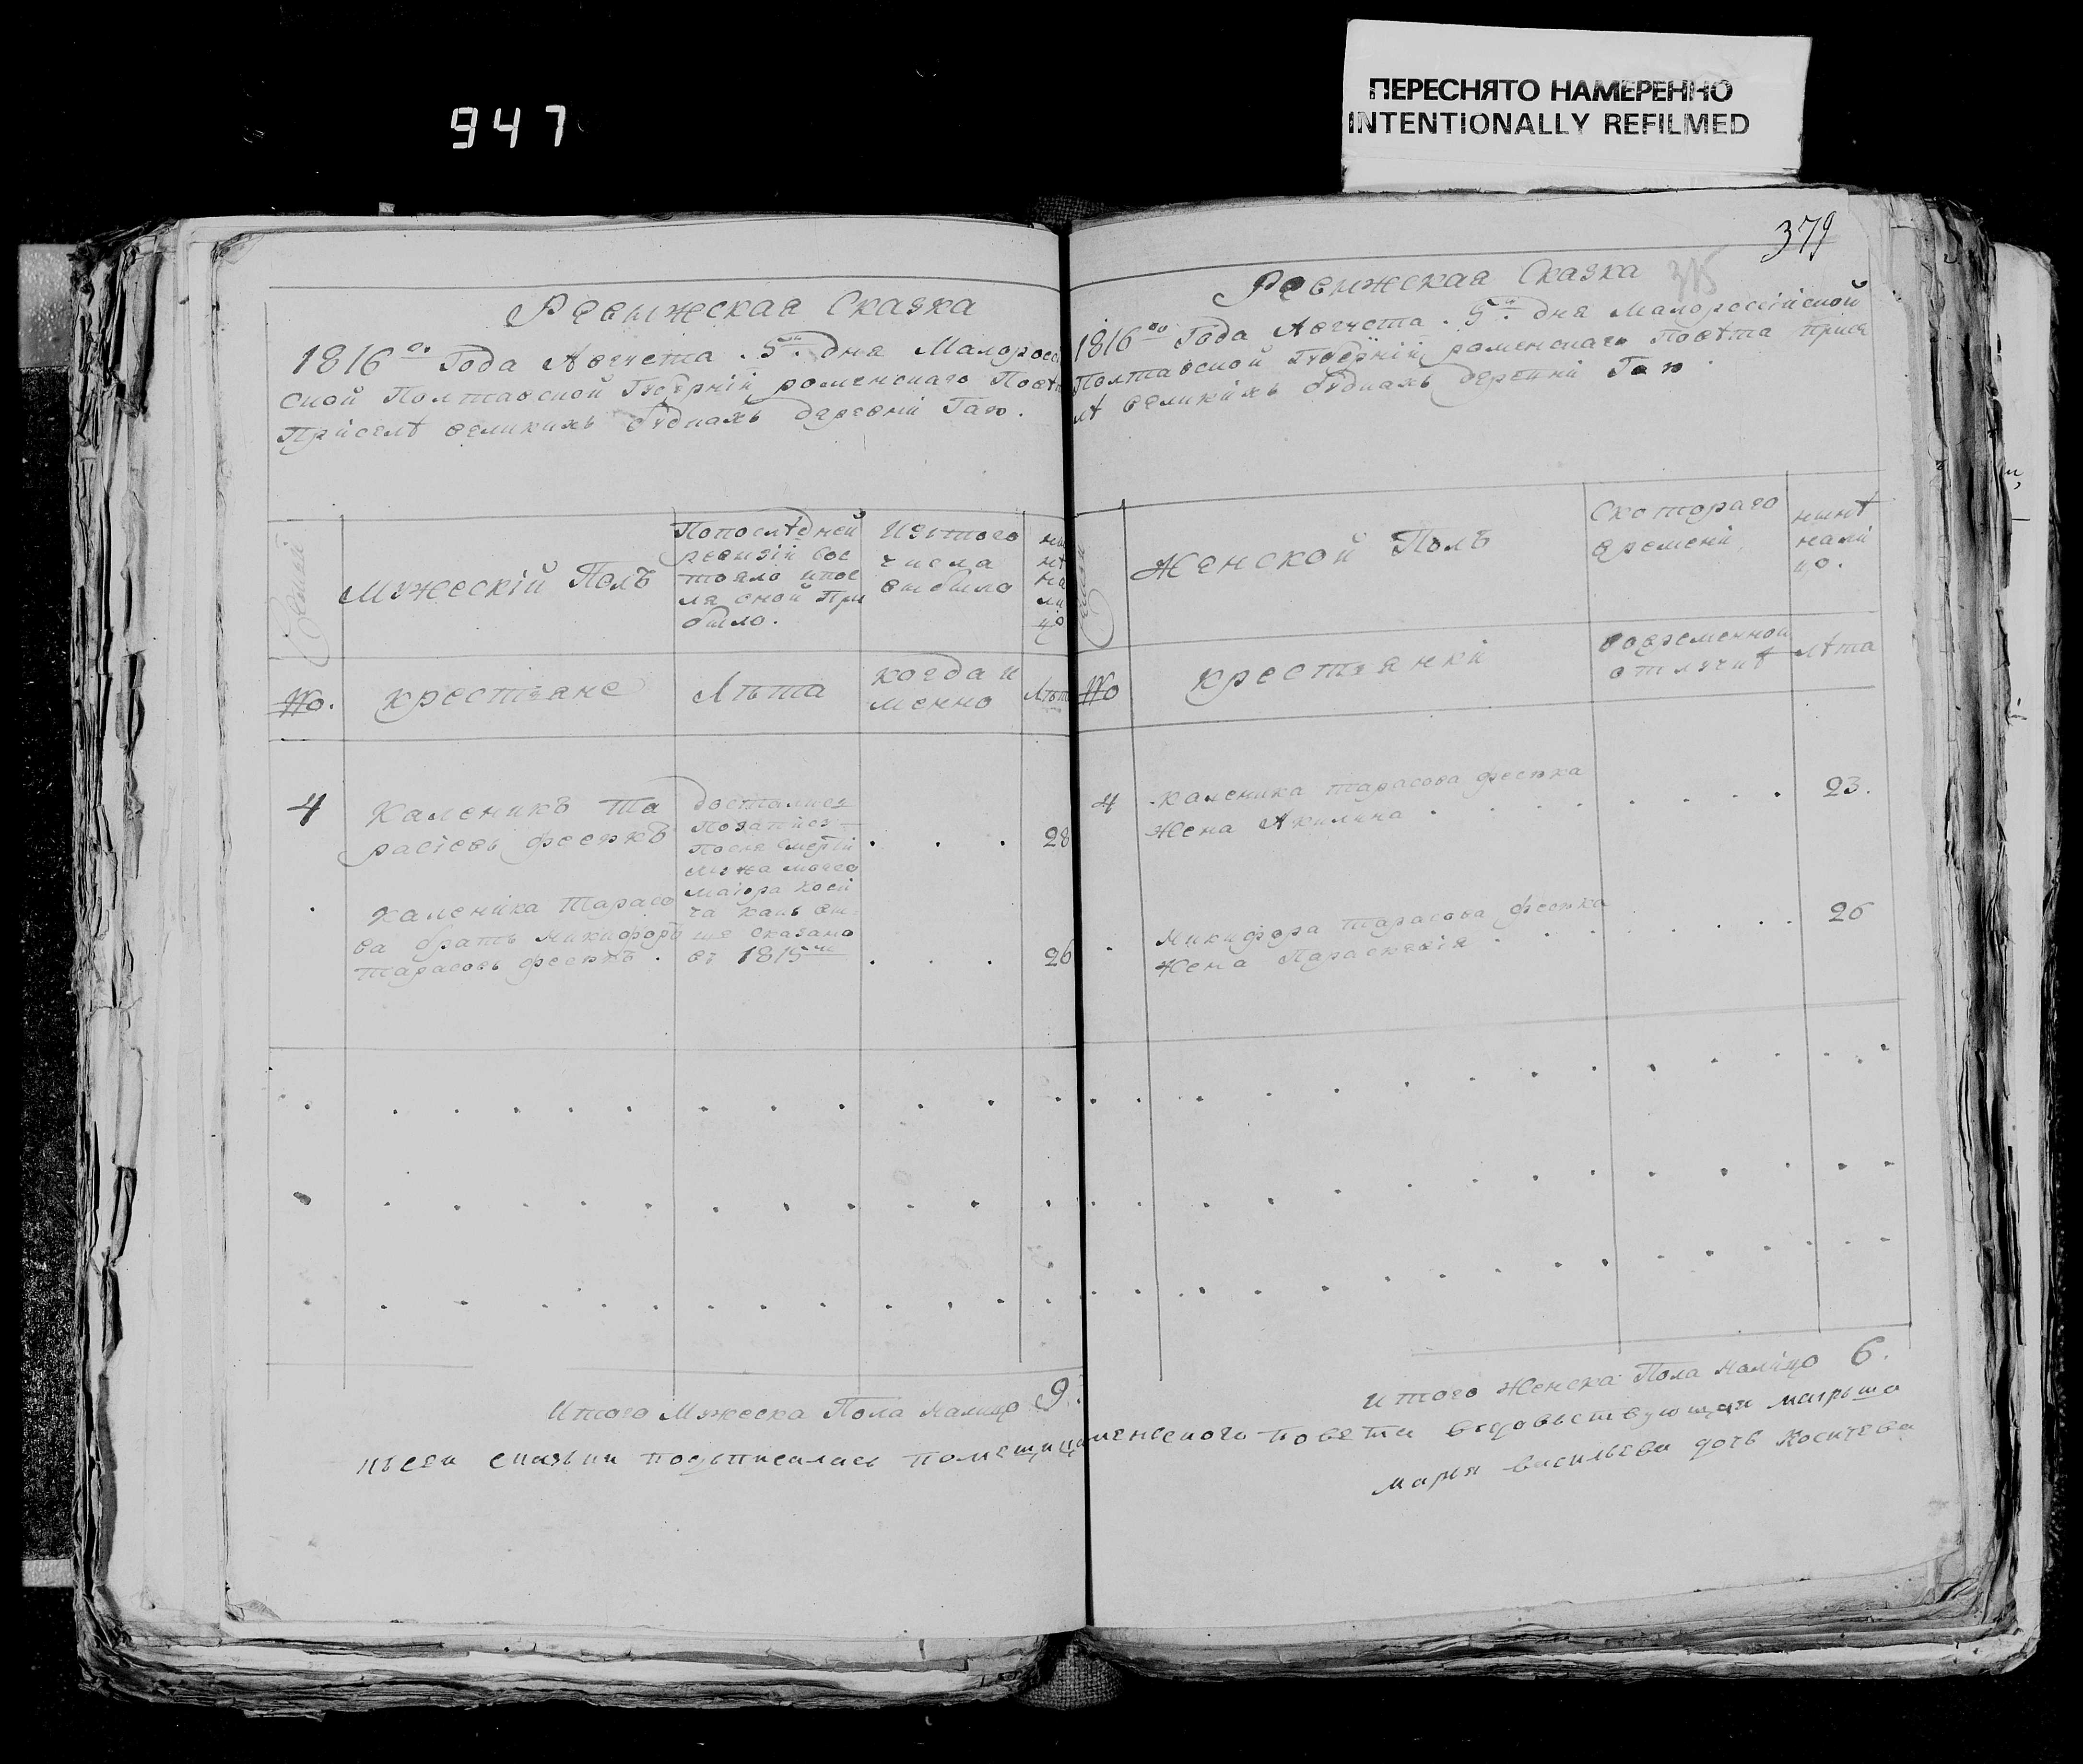 947
ПЕРЕСНЯТО НАМЕРЕННО
INTENTIONALLY REFILMED
Ревыжская Сказка
1816го Года Августа . 5го. дня Малоросс
ской Полтавской Губернїи роменскаго Повѣт
Приселѣ великихъ будкахъ деревнї Гаю.
Семей
Мужескїй Полъ
Попослѣдней
ревизїй Сос
тояло ипос
ля оной При
было.
Изътого
числа
отбыло
нын
нѣ
на
ли
цо
No.
крестяне
Лѣта
когда и
менно
Лѣт
4
Каленикъ Та
расїевъ фесюкъ
досталися
Позаписѣ
После смертїй
мужа моего
маїора Коси
ча какъ вы
ше сказано
въ 1815мъ
28
Каленїка Тарасо
ва братъ Микифоръ
Тарасовъ фесюкъ .
26
Итого Мужеска Пола налицо 9.
379
315
Ревыжская Сказка
1816го Года Августа . 5го. дня Малороссїйской
Полтавской Губернїй роменскаго Повѣта Присе
лѣ великихъ будкахъ деревнї Гаю .
Семей
Женской Полъ
Скотораго
времени
нынѣ
нали
цо.
No
крестянкї
вовременной
отлучкѣ
лѣта
4
Каленика Тарасова фесюка
Жена Акилина
23.
Микифора Тарасова фесюка
Жена Параскевїя
26
Итого Женска Пола налицо 6.
ксей сказки подписалась помещица роменского повета вдовствующая маіорша
мария васильева дочь Косичева